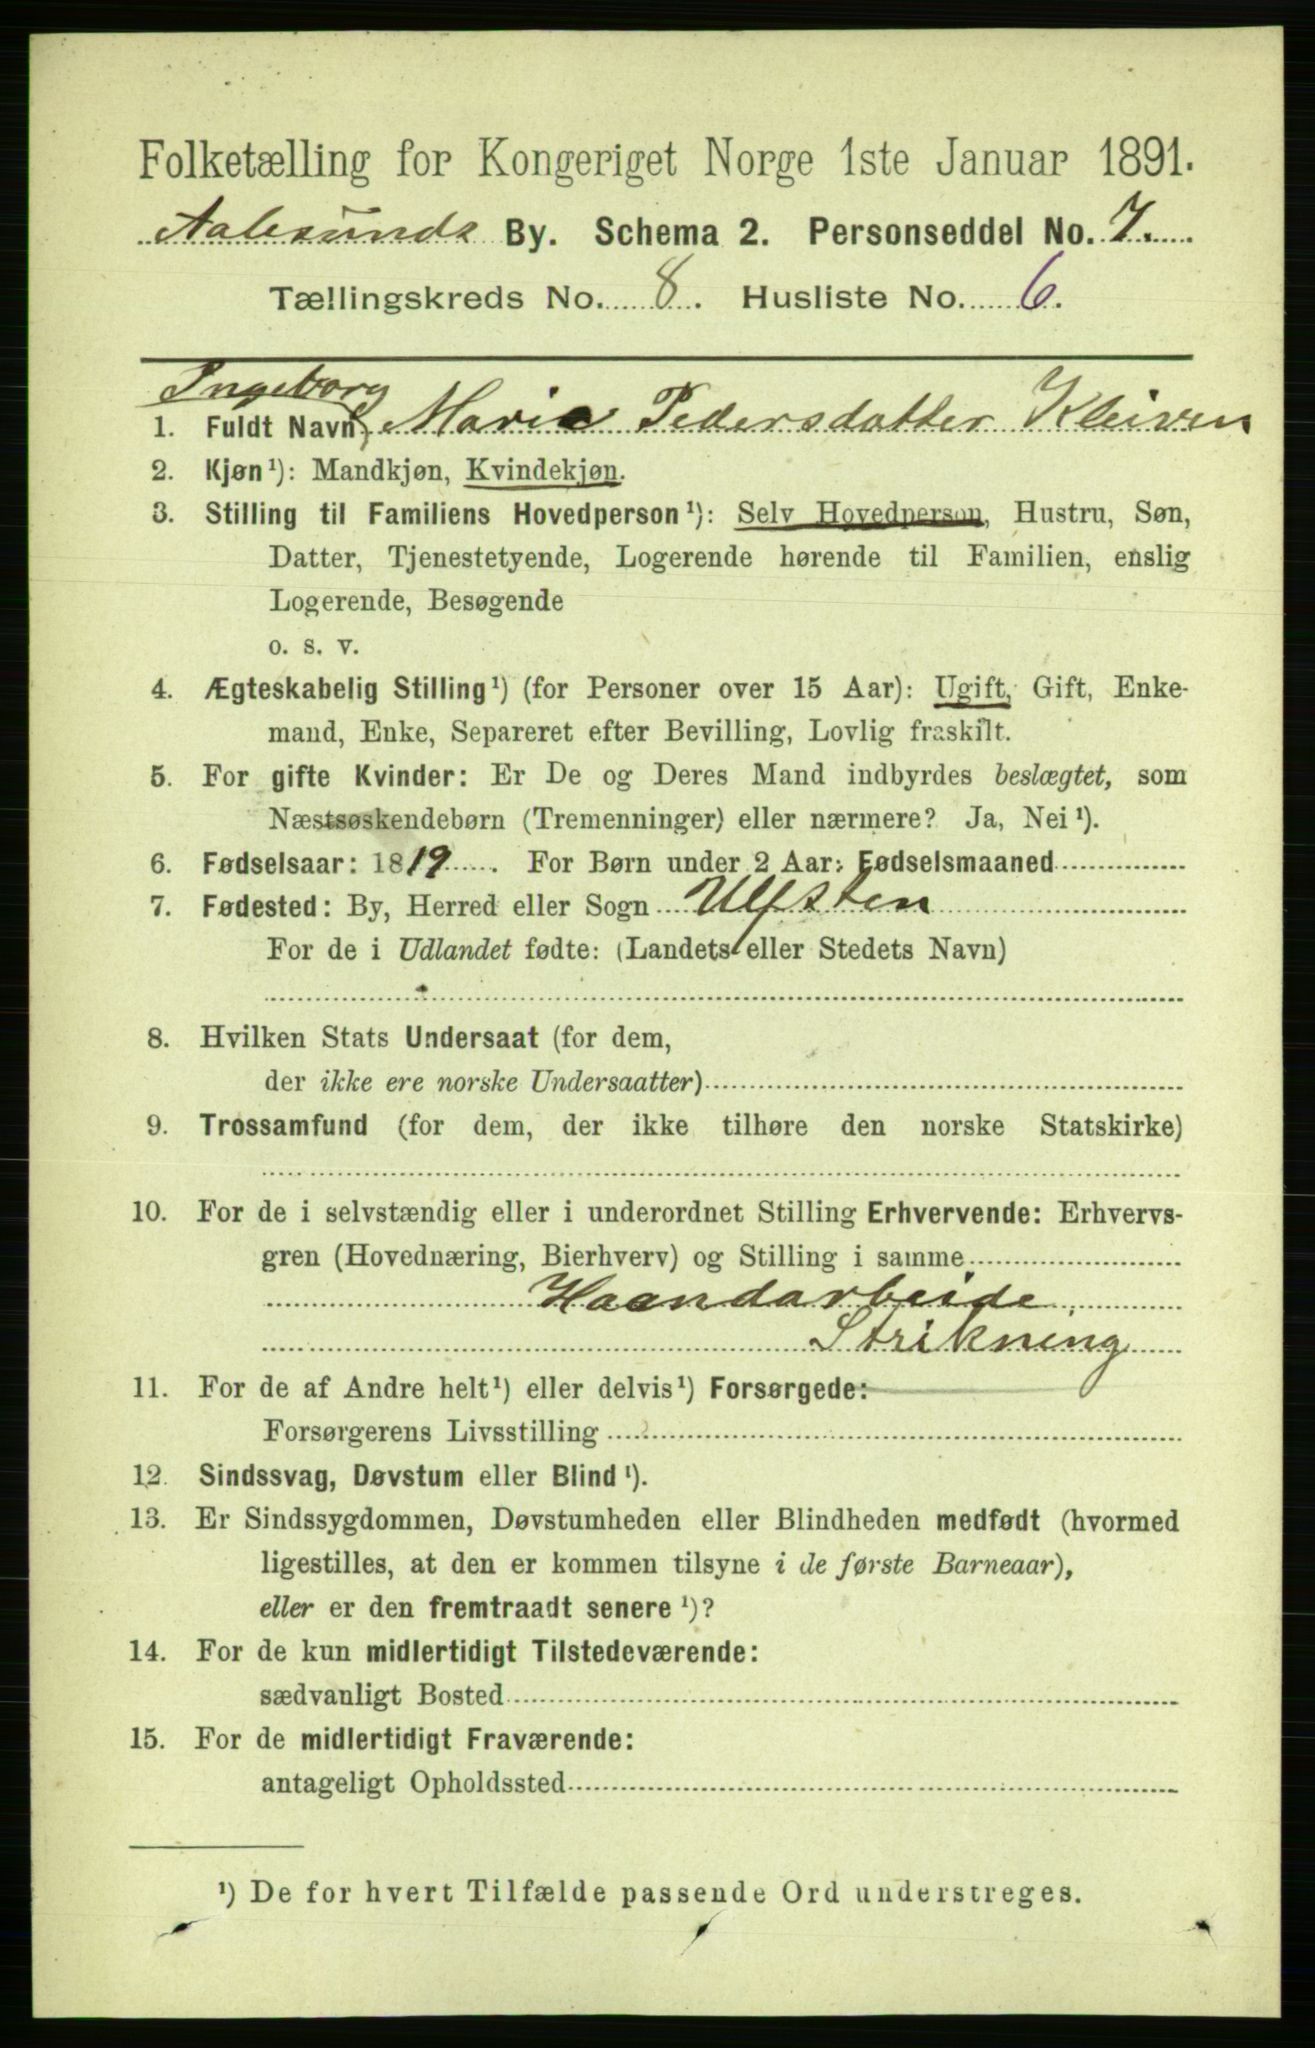 Folketælling for Kongeriget Norge 1ste Januar 1891.
Aalesunds By. Schema 2. Personseddel No. 7.
Tællingskreds No. 8. Husliste No. 6.
Ingeborg
1. Fuldt Navn, Marie Pedersdatter Kleiven
2. Kjøn¹): Mandkjøn, Kvindekjøn.
3. Stilling til Familiens Hovedperson¹): Selv Hovedperson, Hustru, Søn,
Datter, Tjenestetyende, Logerende hørende til Familien, enslig
Logerende, Besøgende
o. s. v.
4. Ægteskabelig Stilling¹) (for Personer over 15 Aar): Ugift, Gift, Enke-
mand, Enke, Separeret efter Bevilling, Lovlig fraskilt.
5. For gifte Kvinder: Er De og Deres Mand indbyrdes beslægtet, som
Næstsøskendebørn (Tremenninger) eller nærmere? Ja, Nei¹).
6. Fødselsaar: 1819. For Børn under 2 Aar: Fødselsmaaned
7. Fødested: By, Herred eller Sogn Ulfsten
For de i Udlandet fødte: (Landets eller Stedets Navn)
8. Hvilken Stats Undersaat (for dem,
der ikke ere norske Undersaatter)
9. Trossamfund (for dem, der ikke tilhøre den norske Statskirke)
10. For de i selvstændig eller i underordnet Stilling Erhvervende: Erhvervs-
gren (Hovednæring, Bierhverv) og Stilling i samme
Haandarbeide,
Strikning
11. For de af Andre helt¹) eller delvis¹) Forsørgede:
Forsørgerens Livsstilling
12. Sindssvag, Døvstum eller Blind¹).
13. Er Sindssygdommen, Døvstumheden eller Blindheden medfødt (hvormed
ligestilles, at den er kommen tilsyne i de første Barneaar),
eller er den fremtraadt senere¹)?
14. For de kun midlertidigt Tilstedeværende:
sædvanligt Bosted
15. For de midlertidigt Fraværende:
antageligt Opholdssted
¹) De for hvert Tilfælde passende Ord understreges.